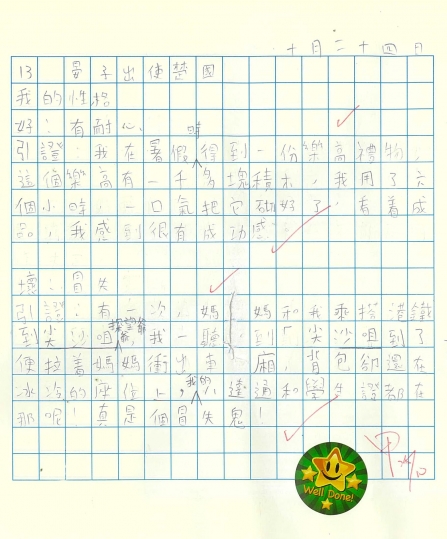 十月二十四日
13 晏子出使楚國
我的性格
好：有耐心。
時
引證：我在暑假得到一份樂高禮物，
這個樂高有一千多塊積木，我用了六
個小時，一口氣把它砌好了，看着成
品，我感到很有成功感。
壞：冒失
引證：有一次，媽媽和我乘搭港鐵
到尖沙咀，我一聽到「尖沙咀到了
便拉着媽媽衝出車廂，背包卻還在
我的
冰冷的座位上，八達通和學生證都在
那呢！真是個冒失鬼！
Well Done!
甲